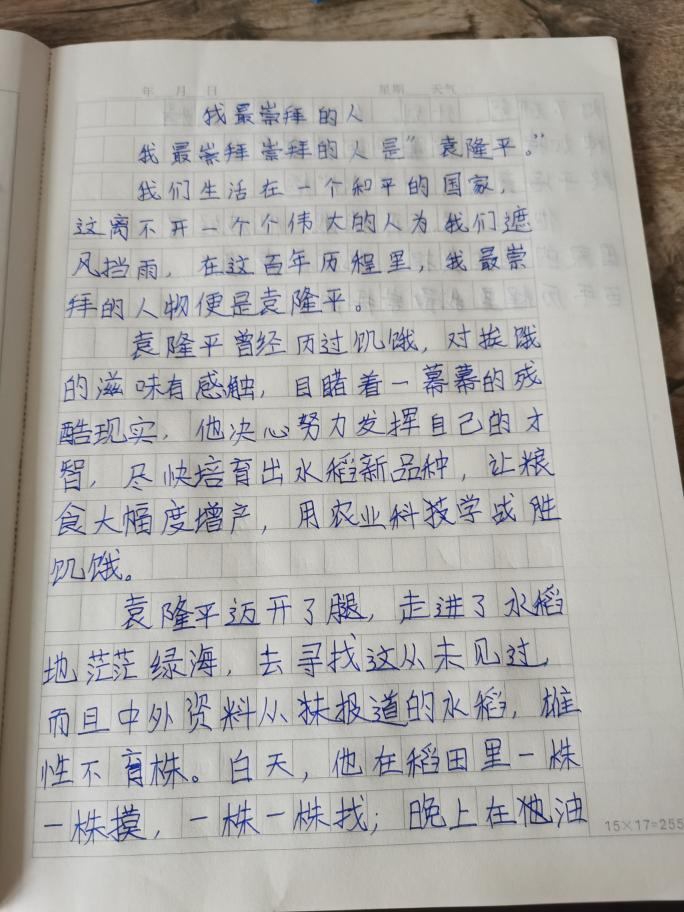 年 月 日 星期 天气
我最崇拜的人
我最崇拜崇拜的人是“袁隆平。”
我们生活在一个和平的国家，
这离不开一个个伟大的人为我们遮
风挡雨，在这百年历程里，我最崇
拜的人物便是袁隆平。
袁隆平曾经历过饥饿，对挨饿
的滋味有感触，目睹着一幕幕的残
酷现实，他决心努力发挥自己的才
智，尽快培育出水稻新品种，让粮
食大幅度增产，用农业科技学战胜
饥饿。
袁隆平迈开了腿，走进了水稻
地茫茫绿海，去寻找这从未见过，
而且中外资料从抹报道的水稻，雄
性不育株。白天，他在稻田里一株
一株摸，一株一株找；晚上在油
15×17=255